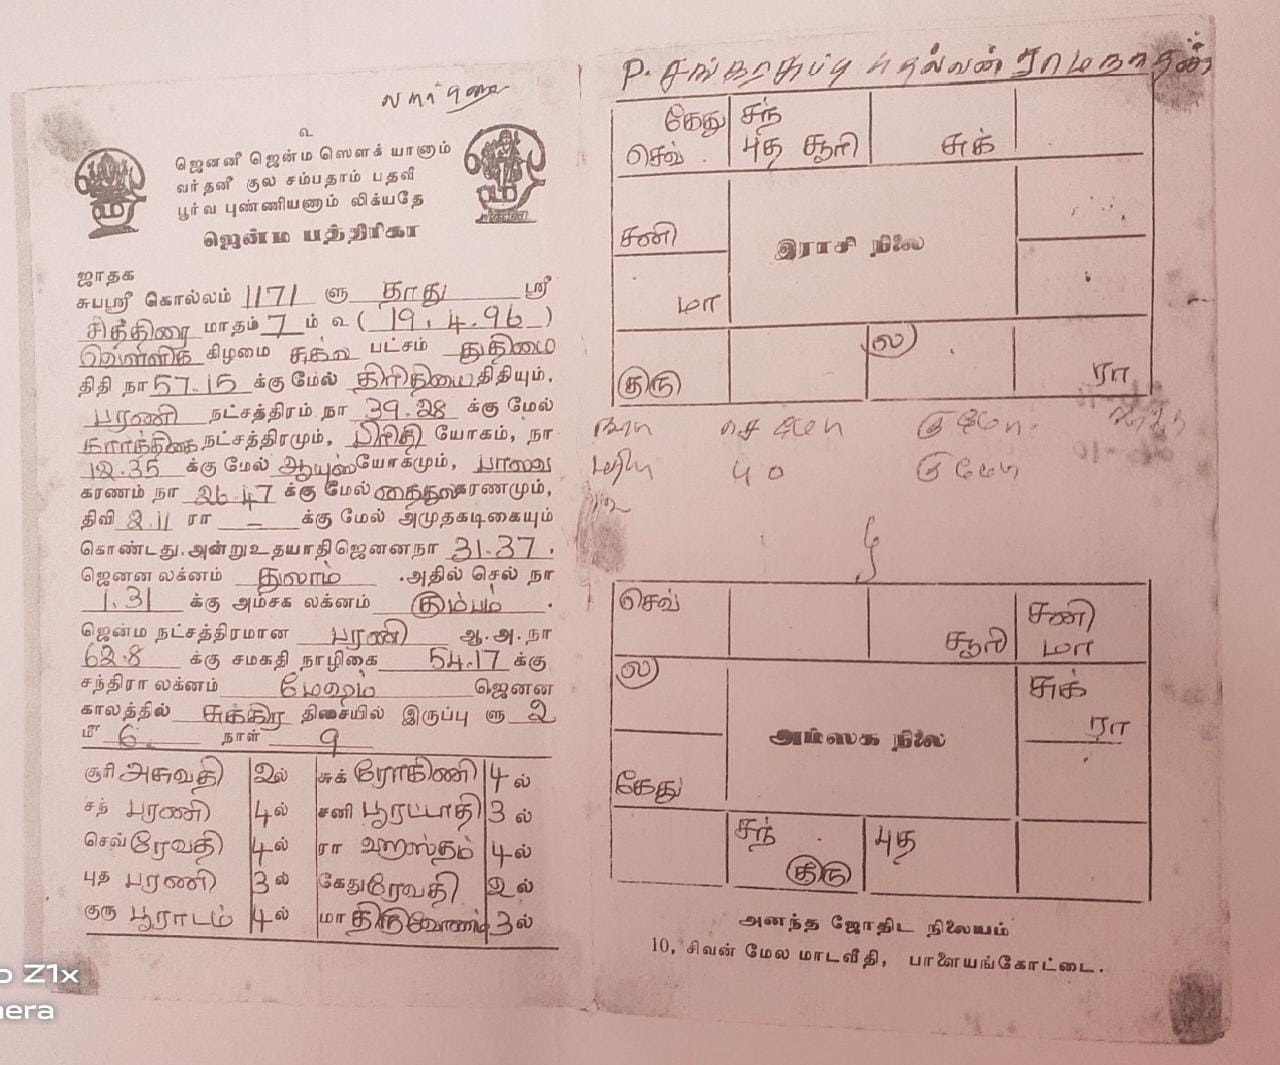 உ
ஜெனனீ ஜென்ம ஸௌக்யானாம்
வர்தனீ குல சம்பதாம் பதவீ
பூர்வ புண்ணியனாம் லிக்யதே
ஜென்ம பத்திரிகா
ஜாதக
சுபஸ்ரீ கொல்லம் 1171 ளு தாது ஸ்ரீ
சித்திரை மாதம் 7 ம் உ ( 19.4.96 )
வெள்ளிக் கிழமை சுக்ல பட்சம் துதிமை
திதி நா 57.15 க்கு மேல் திரிதியை திதியும்,
பரணி நட்சத்திரம் நா 39.28 க்கு மேல்
கார்த்திகை நட்சத்திரமும், பிரிதி யோகம், நா
12.35 க்கு மேல் ஆயுஷ் யோகமும், பாலவ
கரணம் நா 26.47 க்கு மேல் கைதுல கரணமும்,
திவி 2.11 ரா – க்கு மேல் அமுதகடிகையும்
கொண்டது. அன்று உதயாதி ஜெனன நா 31.37.
ஜெனன லக்னம் துலாம் . அதில் செல் நா
1.31 க்கு அம்சக லக்னம் கும்பம் .
ஜென்ம நட்சத்திரமான பரணி ஆ.அ.நா
62.8 க்கு சமகதி நாழிகை 54.17 க்கு
சந்திரா லக்னம் மேஷம் ஜெனன
காலத்தில் சுக்கிர திசையில் இருப்பு ளு 2
மீ 6 நாள் 9
சூரி அசுவதி 2ல் சுக் ரோகிணி 4ல்
சந் பரணி 4ல் சனி பூரட்டாதி 3ல்
செவ் ரேவதி 4ல் ரா ஹஸ்தம் 4ல்
புத பரணி 3ல் கேது ரேவதி 2ல்
குரு பூராடம் 4ல் மா திருவோணம் 3ல்
P. சங்கரசுப்பு புதல்வன் ராமநாதன்
கேது சந்
செவ் புத சூரி சுக்
சனி
இராசி நிலை
மா
ல
குரு ரா
செவ் சனி
சூரி மா
ல சுக்
ரா
அம்ஸக நிலை
கேது
சந் புத
குரு
அனந்த ஜோதிட நிலையம்
10, சிவன் மேல மாடவீதி, பாளையங்கோட்டை.